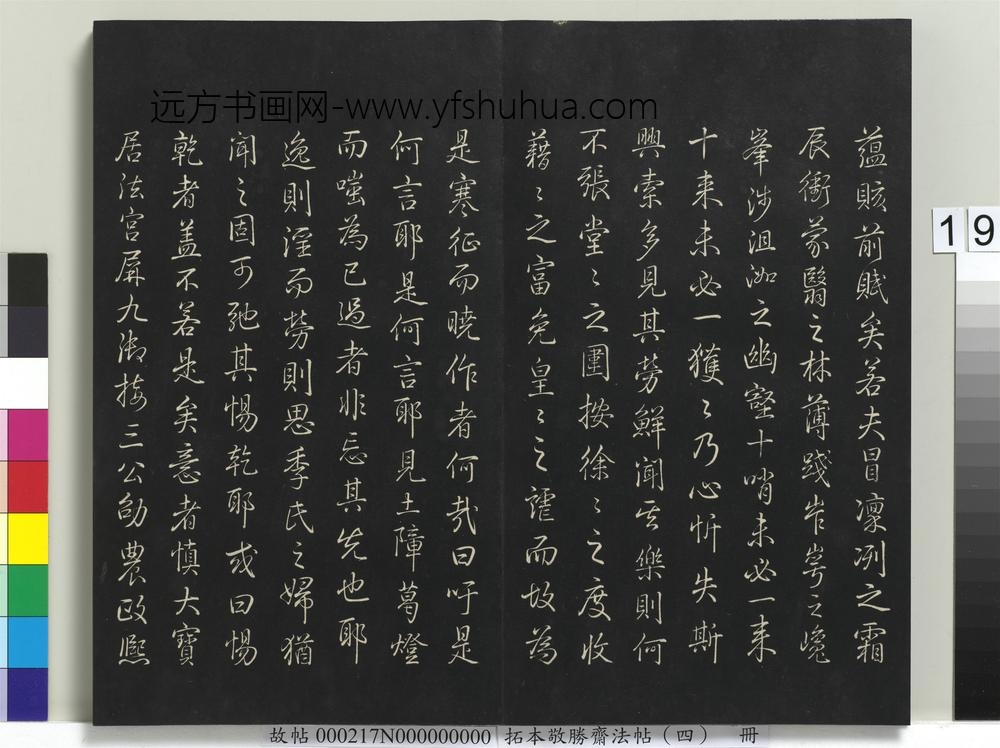 蕴赅前賦矣若夫冒凛冽之霜
辰衝蒙翳之林薄踐岞崿之巉
峯涉沮洳之幽壑十哨未必一来
十来未必一獲〻乃心忻失斯
興索多見其勞鮮聞其樂則何
不張堂〻之圍按徐〻之度收
藉〻之富免皇〻之謔而故為
是寒征而曉作者何哉曰吁是
何言耶是何言耶見土障葛燈
而嗤為已過者非忘其先也耶
逸則淫而勞則思季氏之婦猶
聞之固可弛其惕乾耶或曰惕
乾者盖不若是矣意者慎大寶
居法宫屏九御接三公劭農政熙
远方书画网-www.yfshuhua.com
19
故帖 000217N000000000 拓本敬勝齋法帖（四） 冊